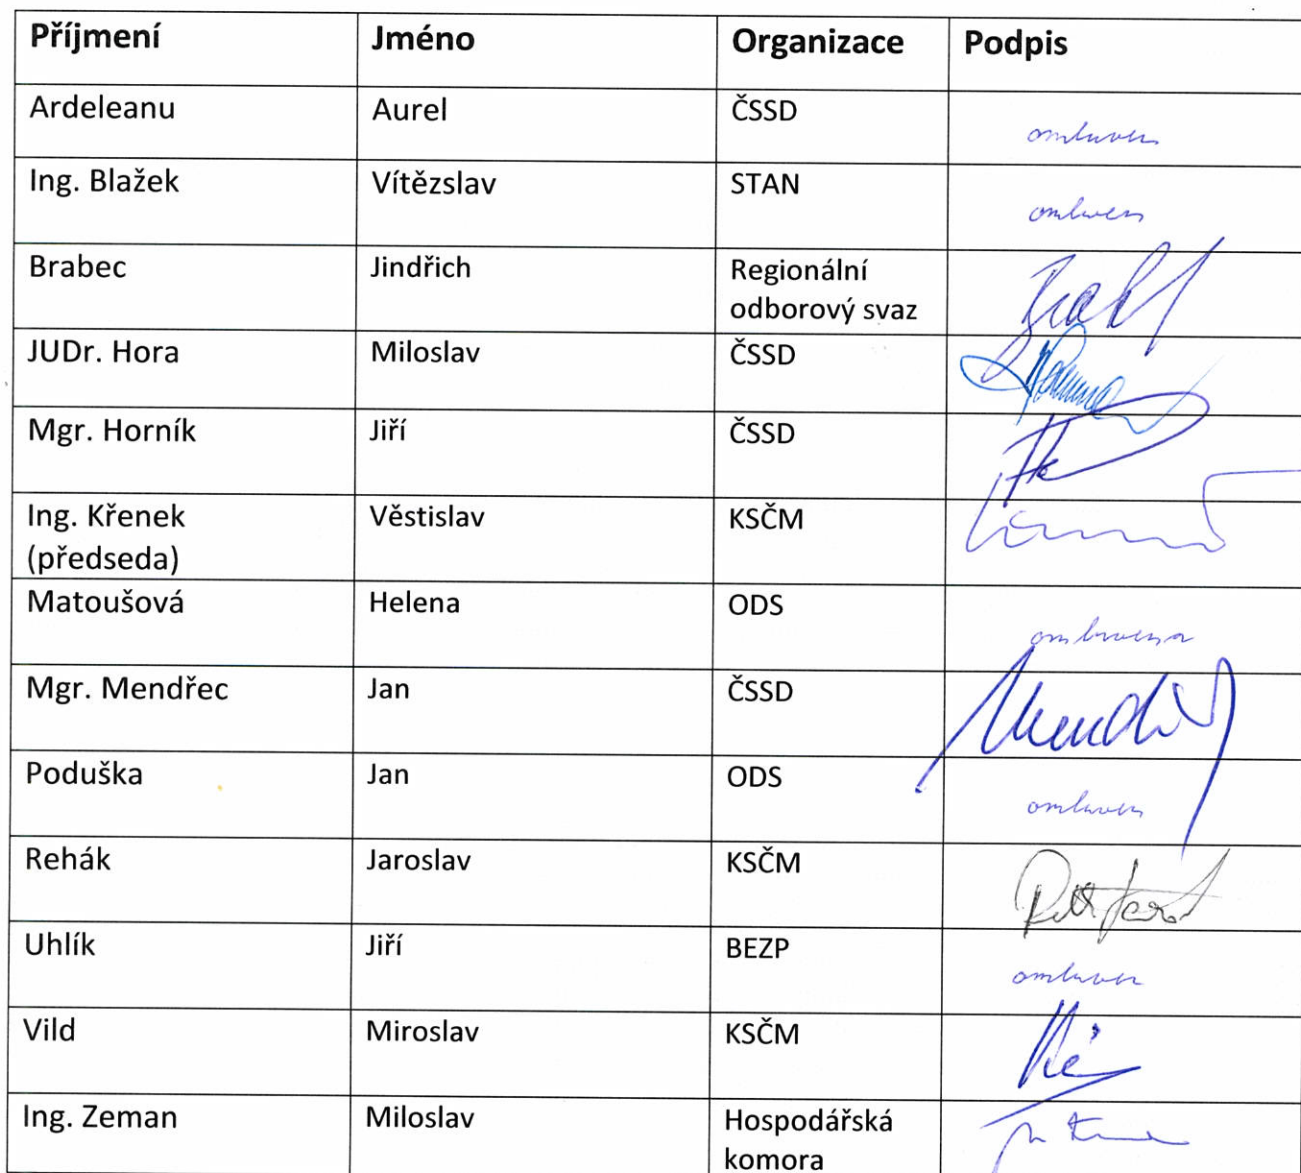 Příjmení Jméno Organizace Podpis
Ardeleanu Aurel ČSSD omluven
Ing. Blažek Vítězslav STAN omluven
Brabec Jindřich Regionální
odborový svaz
JUDr. Hora Miloslav ČSSD
Mgr. Horník Jiří ČSSD
Ing. Křenek Věstislav KSČM
(předseda)
Matoušová Helena ODS omluvena
Mgr. Mendřec Jan ČSSD
Poduška Jan ODS omluven
Rehák Jaroslav KSČM
Uhlík Jiří BEZP omluven
Vild Miroslav KSČM
Ing. Zeman Miloslav Hospodářská
komora